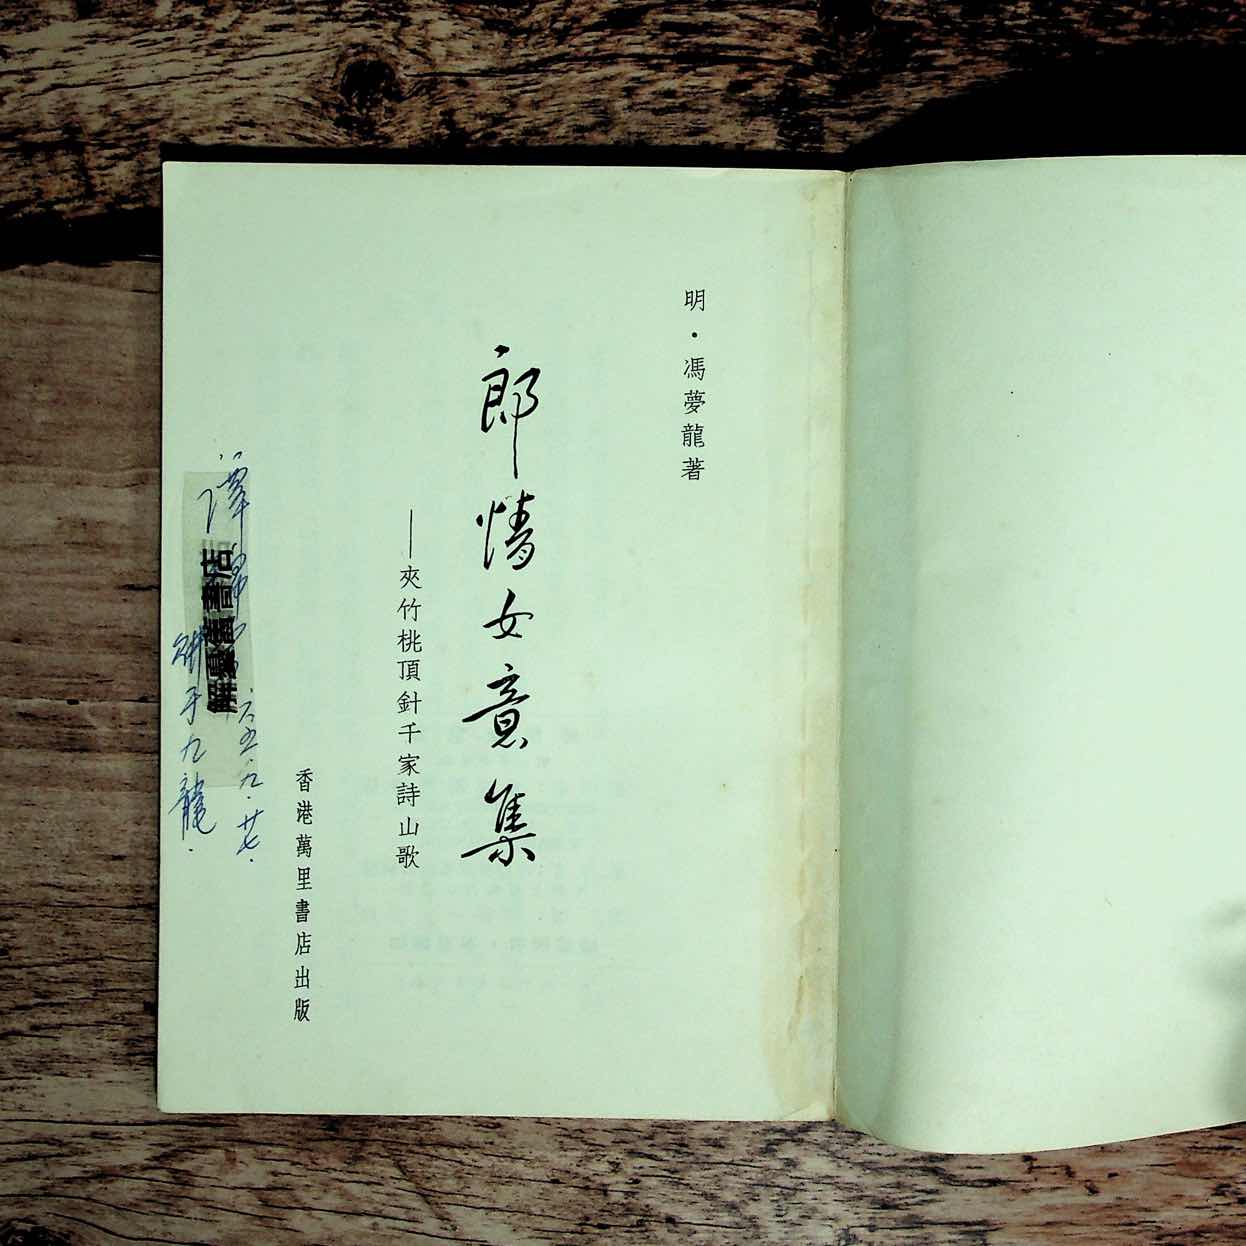 明·馮夢龍著
郎情女意集
——夾竹桃頂針千家詩山歌
香港萬里書店出版
六五.九.廿七.
于九龍.